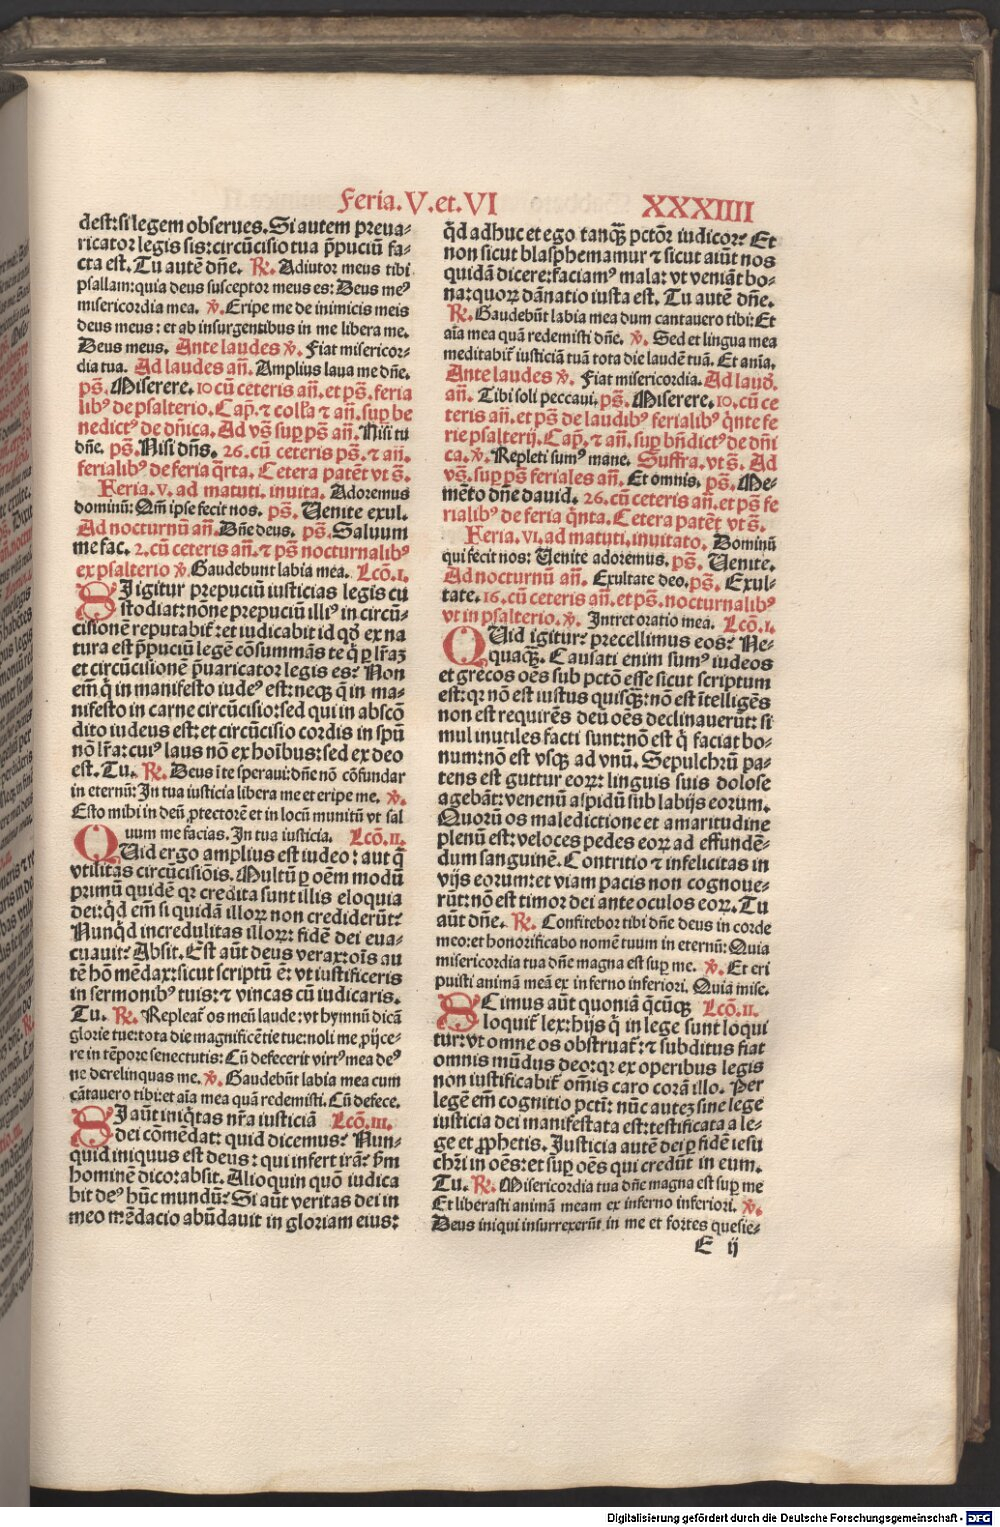 Feria.V.et.VI XXXIIII
dest:si legem obserues.Si autem preua-
ricator legis sis:circũcisio tua p̃puciũ fa-
cta est.Tu autẽ dñe. R̃. Adiutor meus tibi
psallam:quia deus susceptor meus es:Deus meꝰ
misericordia mea. v̉. Eripe me de inimicis meis
deus meus: et ab insurgentibus in me libera me.
Deus meus. Ante laudes v̉. Fiat misericor-
dia tua. Ad laudes añ. Amplius laua me dñe.
pŝ. Miserere. 10 cũ ceteris añ. et pŝ. feria
libꝰ de psalterio. Cap̃. ⁊ coll̃a ⁊ añ. sup̱ be
nedictꝰ de dñica. Ad vŝ sup̱ pŝ añ. Nisi tu
dñe. pŝ. Nisi dñs. 26. cũ ceteris pŝ. ⁊ añ.
ferialibꝰ de feria q̃rta. Cetera patẽt vt ŝ.
Feria. v. ad matuti. inuita. Adoremus
dominũ: Qm̃ ipse fecit nos. pŝ. Uenite exul.
Ad nocturnũ añ. Dñe deus. pŝ. Saluum
me fac. 2. cũ ceteris añ. ⁊ pŝ nocturnalibꝰ
ex psalterio v̉. Gaudebunt labia mea. Lcõ. I.
SI igitur prepuciũ iusticias legis cu
stodiat: nõne prepuciũ illiꝰ in circũ-
cisionẽ reputabit̃: et iudicabit id qď ex na
tura est p̃puciũ legẽ cõsummãs te q̃ p̱ lr̃aȝ
et circũcisionẽ p̃uaricator legis es? Non
em̃ q̃ in manifesto iudeꝰ est: neqꝫ q̃ in ma-
nifesto in carne circũcisio: sed qui in abscõ
dito iudeus est: et circũcisio cordis in spũ
nõ lr̃a: cuiꝰ laus nõ ex hoĩbus: sed ex deo
est. Tu. R̃. Deus ĩ te speraui: dñe nõ cõfundar
in eternũ: In tua iusticia libera me et eripe me. v̉.
Esto mihi in deũ ꝓtectorẽ et in locũ munitũ vt sal
uum me facias. In tua iusticia. Lcõ. II.
QUid ergo amplius est iudeo: aut q̃
vtilitas circũcisiõis. Multũ p̱ oẽm modũ
primũ quidẽ qꝛ credita sunt illis eloquia
dei: q̃d em̃ si quidã illoꝝ non crediderũt?
Nunq̃d incredulitas illoꝝ: fidẽ dei eua-
cuauit? Absit. Est aũt deus verax: oĩs au
tẽ hõ mẽdax: sicut scriptũ ẽ: vt iustificeris
in sermonibꝰ tuis: ⁊ vincas cũ iudicaris.
Tu. R̃. Repleat̃ os meũ laude: vt hymnũ dicã
glorie tue: tota die magnificẽtie tue: noli me ꝓijce-
re in tẽpore senectutis: Cũ defecerit virtꝰ mea deꝰ
ne derelinquas me. v̉. Gaudebũt labia mea cum
cãtauero tibi: et aĩa mea quã redemisti. Cũ defece.
SI aũt iniq̃tas nr̃a iusticiã Lcõ. III.
dei cõmẽdat: quid dicemus? Nun-
quid iniquus est deus: qui infert irã? Fm
hominẽ dico: absit. Alioquin quõ iudica
bit deꝰ hũc mundũ? Si aũt veritas dei in
meo mẽdacio abũdauit in gloriam eius:
q̃d adhuc et ego tanq̃ꝫ pctõr iudicor? Et
non sicut blasphemamur ⁊ sicut aiũt nos
quidã dicere: faciamꝰ mala: vt veniãt bo-
na: quoꝝ dãnatio iusta est. Tu autẽ dñe.
R̃. Gaudebũt labia mea dum cantauero tibi: Et
aĩa mea quã redemisti dñe. v̉. Sed et lingua mea
meditabit̃ iusticiã tuã tota die laudẽ tuã. Et anĩa.
Ante laudes v̉. Fiat misericordia. Ad lauď.
añ. Tibi soli peccaui. pŝ. Miserere. 10. cũ ce
teris añ. et pŝ. de laudibꝰ ferialibꝰ q̃nte fe
rie psalterij. Cap̃. ⁊ añ. sup̱ bñdictꝰ de dñi
ca. v̉. Repleti sumꝰ mane. Suffra. vt ŝ. Ad
vŝ. sup̱ pŝ feriales añ. Et omnis. pŝ. Me-
mẽto dñe dauid. 26. cũ ceteris añ. et pŝ fe
rialibꝰ de feria q̃nta. Cetera patẽt vt ŝ.
Feria. VI. ad matuti. inuitato. Dominũ
qui fecit nos: Uenite adoremus. pŝ. Uenite.
Ad nocturnũ añ. Exultate deo. pŝ. Exul-
tate. 16. cũ ceteris añ. et pŝ. nocturnalibꝰ
vt in psalterio. v̉. Intret oratio mea. Lcõ. I.
QUid igitur? precellimus eos? Ne-
quaq̃ꝫ. Causati enim sumꝰ iudeos
et grecos oẽs sub pctõ esse sicut scriptum
est: qꝛ nõ est iustus quisq̃ꝫ: nõ est ĩtelligẽs
non est requirẽs deũ oẽs declinauerũt: si
mul inutiles facti sunt: nõ est q̃ faciat bo-
num: nõ est vsqꝫ ad vnũ. Sepulchrũ pa-
tens est guttur eoꝝ: linguis suis dolose
agebãt: venenũ aspidũ sub labijs eorum.
Quorũ os maledictione et amaritudine
plenũ est: veloces pedes eoꝝ ad effundẽ-
dum sanguinẽ. Contritio ⁊ infelicitas in
vijs eorum: et viam pacis non cognoue-
rũt: nõ est timor dei ante oculos eoꝝ. Tu
aũt dñe. R̃. Confitebor tibi dñe deus in corde
meo: et honorificabo nomẽ tuum in eternũ: Quia
misericordia tua dñe magna est sup̱ me. v̉. Et eri
puisti animã meã ex inferno inferiori. Quia mise.
SCimus aũt quoniã q̃cũqꝫ Lcõ. II.
loquit̃ lex: hijs q̃ in lege sunt loqui
tur: vt omne os obstruat̃: ⁊ subditus fiat
omnis mũdus deo: qꝛ ex operibus legis
non iustificabit̃ om̃is caro corã illo. Per
legẽ em̃ cognitio pctĩ: nũc autez sine lege
iusticia dei manifestata est: testificata a le-
ge et ꝓphetis. Iusticia autẽ dei p̱ fidẽ iesu
chr̃i in oẽs: et sup̱ oẽs qui credũt in eum.
Tu. R̃. Misericordia tua dñe magna est sup̱ me
Et liberasti animã meam ex inferno inferiori. v̉.
Deus iniqui insurrexerũt in me et fortes quesie-
E ij
Digitalisierung gefördert durch die Deutsche Forschungsgemeinschaft - DFG